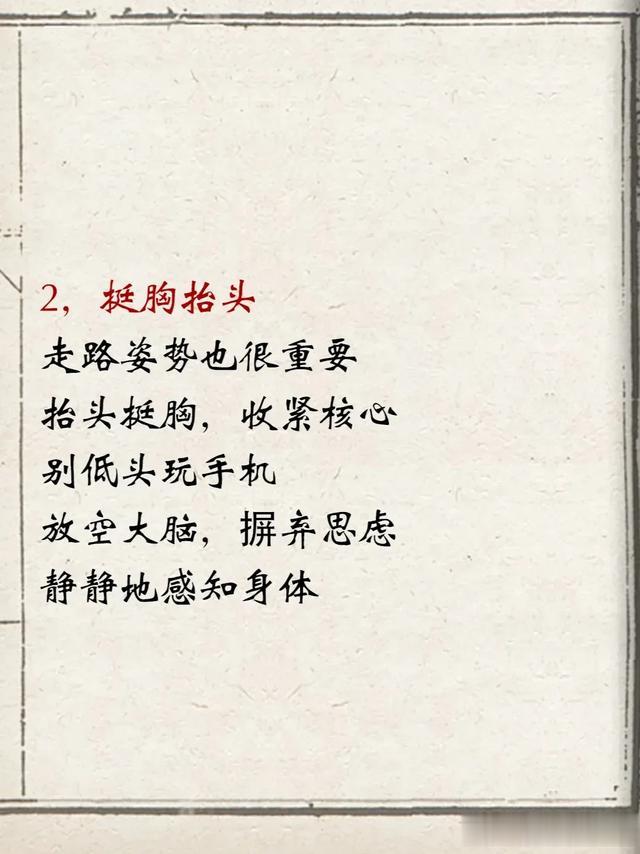 2，挺胸抬头
走路姿势也很重要
抬头挺胸，收紧核心
别低头玩手机
放空大脑，摒弃思虑
静静地感知身体